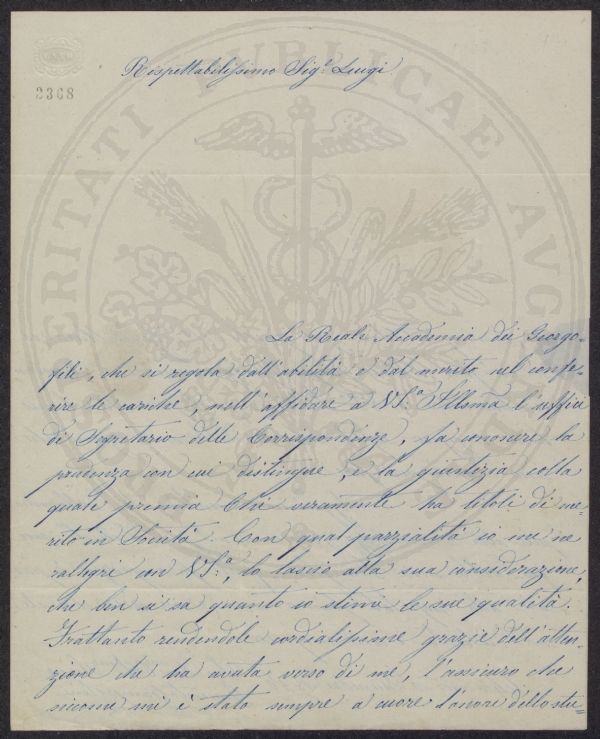 2368
Rispettabilissimo Sig.r Luigi
La Reale Accademia dei Georgo-
fili, che si regola dall'abilità e dal merito nel confe-
rire le cariche, nell'affidare a VS.a Illma l'uffizio
di Segretario delle Corrispondenze, fa conoscere la
prudenza con cui distingue, e la giustizia colla
quale premia Chi veramente ha titoli di me-
rito in Società. Con qual parzialità io me ne
rallegri con VS.a, lo lascio alla sua considerazione,
che ben si sa quanto io stimi le sue qualità.
Frattanto rendendole cordialissime grazie dell'atten-
zione che ha avuta verso di me, l'assicuro che
siccome mi è stato sempre a cuore l'onore dello stu-